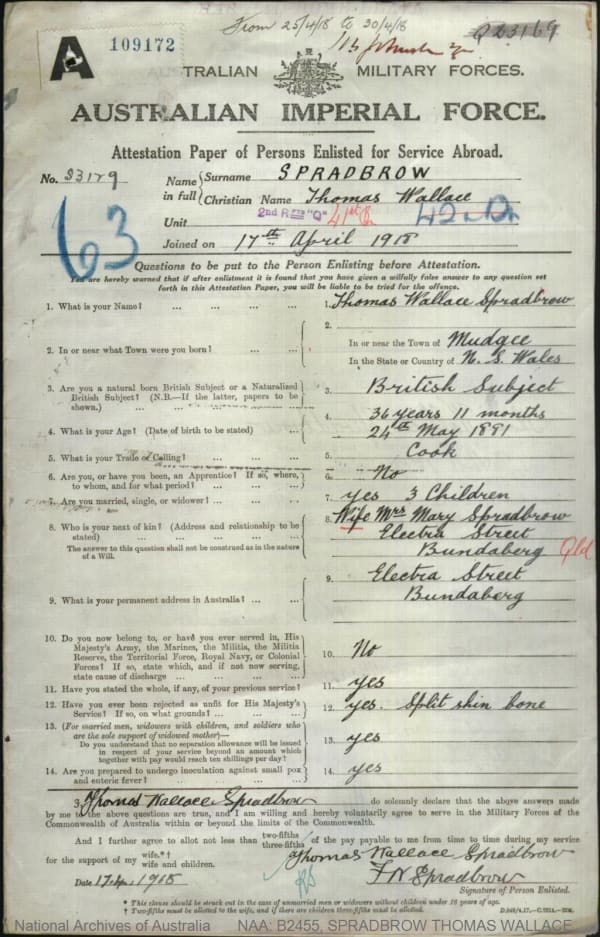 From 25/4/18 to 30/4/18
Q23169
A 109172
AUSTRALIAN MILITARY FORCES.
AUSTRALIAN IMPERIAL FORCE.
Attestation Paper of Persons Enlisted for Service Abroad.
No. Name in full Surname SPRADBROW
Christian Name Thomas Wallace
Unit 2nd "Q"
63
Joined on 17th April 1918
Questions to be put to the Person Enlisting before Attestation.
You are hereby warned that if after enlistment it is found that you have given a wilfully false answer to any question set
forth in this Attestation Paper, you will be liable to be tried for the offence.
1. What is your Name? ... ... 1. Thomas Wallace Spradbrow
2. In or near what Town were you born? ... ... 2. In or near the Town of Mudgee
In the State or Country of N. S. Wales
3. Are you a natural born British Subject or a Naturalized
British Subject? (N.B.—If the latter, papers to be
shown.) ... ... ... ... 3. British Subject
4. What is your Age? (Date of birth to be stated) ... 4. 36 years 11 months
24th May 1881
5. What is your Trade or Calling? ... ... ... 5. Cook
6. Are you, or have you been, an Apprentice? If so, where,
to whom, and for what period? ... ... 6. No
7. Are you married, single, or widower? ... ... 7. yes 3 Children
8. Who is your next of kin? (Address and relationship to be
stated) ... ... ... ... 8. Wife Mrs Mary Spradbrow
Electra Street
Bundaberg Qld
The answer to this question shall not be construed as in the nature
of a Will.
9. What is your permanent address in Australia? ... ... 9. Electra Street
Bundaberg
10. Do you now belong to, or have you ever served in, His
Majesty's Army, the Marines, the Militia, the Militia
Reserve, the Territorial Force, Royal Navy, or Colonial
Forces? If so, state which, and if not now serving,
state cause of discharge ... ... ... 10. No
11. Have you stated the whole, if any, of your previous service? 11. yes
12. Have you ever been rejected as unfit for His Majesty's
Service? If so, on what grounds? ... ... ... 12. yes. Split shin bone
13. (For married men, widowers with children, and soldiers who
are the sole support of widowed mother)—
Do you understand that no separation allowance will be issued
in respect of your service beyond an amount which
together with pay would reach ten shillings per day? 13. yes
14. Are you prepared to undergo inoculation against small pox
and enteric fever? ... ... ... ... 14. yes
I, Thomas Wallace Spradbrow do solemnly declare that the above answers made
by me to the above questions are true, and I am willing and hereby voluntarily agree to serve in the Military Forces of the
Commonwealth of Australia within or beyond the limits of the Commonwealth.
And I further agree to allot not less than two-fifths three-fifths of the pay payable to me from time to time during my service
for the support of my wife.*† wife and children. Thomas Wallace Spradbrow
Date 17 1918 Spradbrow
Signature of Person Enlisted.
* This clause should be struck out in the case of unmarried men or widowers without children under 16 years of age.
† Two-fifths must be allotted to the wife, and if there are children three-fifths must be allotted.
National Archives of Australia NAA: B2455, SPRADBROW THOMAS WALLACE